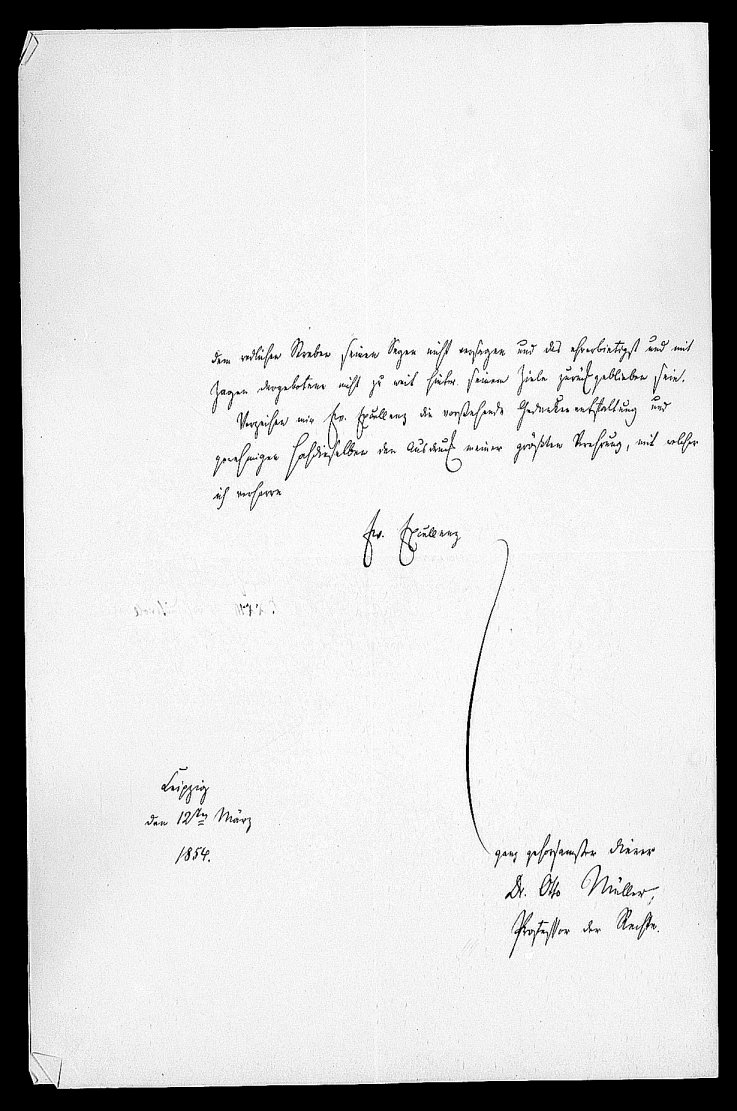 dem redlichen Streben seinen Segen nicht versagen und das ehrerbietigst und mit
Zagen dargebotene nicht zu weit hinter seinem Ziele zurückgeblieben sein.
Verzeihen mir Ew. Excellenz die vorstehende Gedankenentfaltung und
genehmigen Hochdieselben den Ausdruck meiner größten Verehrung, mit welcher
ich verharre
Ew. Excellenz
Leipzig
den 12ten März
1854.
ganz gehorsamster Diener
Dr. Otto Müller,
Professor der Rechte.